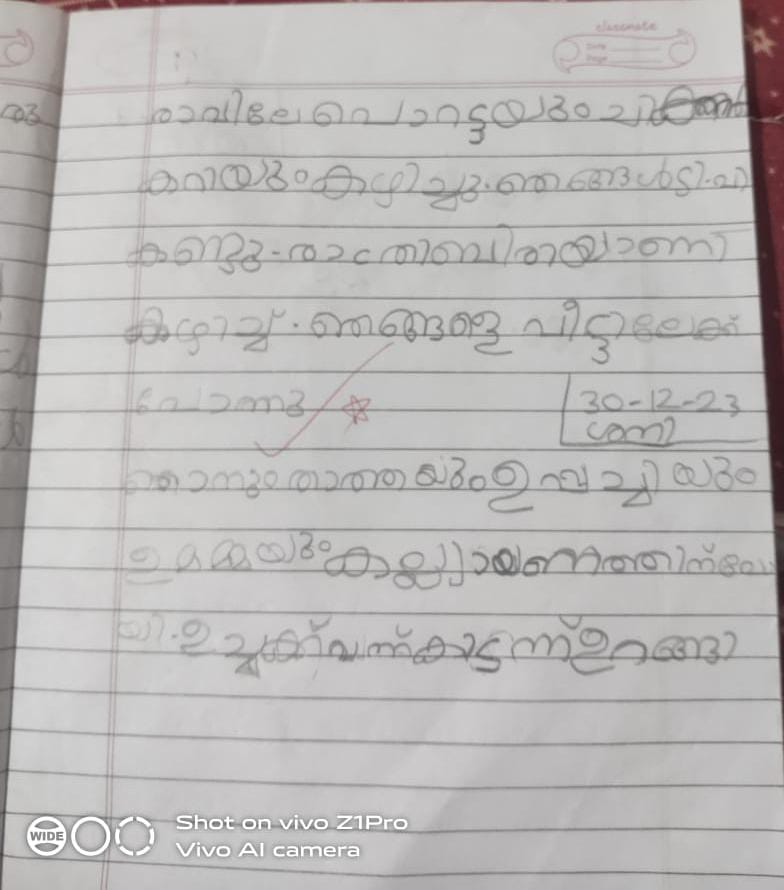 classmate
Date
Page
രാവിലെ പൊറട്ടയും ചിക്കൻ
കറിയും കഴിച്ചു. ഞങ്ങൾ ടി.വി
കണ്ടു. രാത്രി ബിരിയാണി
കഴിച്ച്. ഞങ്ങളെ വീട്ടിലേക്ക്
പോന്നു
30-12-23
ശനി
ഞാനും താത്തയും ഉപ്പച്ചിയും
ഉമ്മയും കല്ല്യാണത്തിന് പോ
യി. ഉച്ചക്ക് വന്ന് കിടന്ന് ഉറങ്ങി
WIDE
Shot on vivo Z1Pro
Vivo AI camera